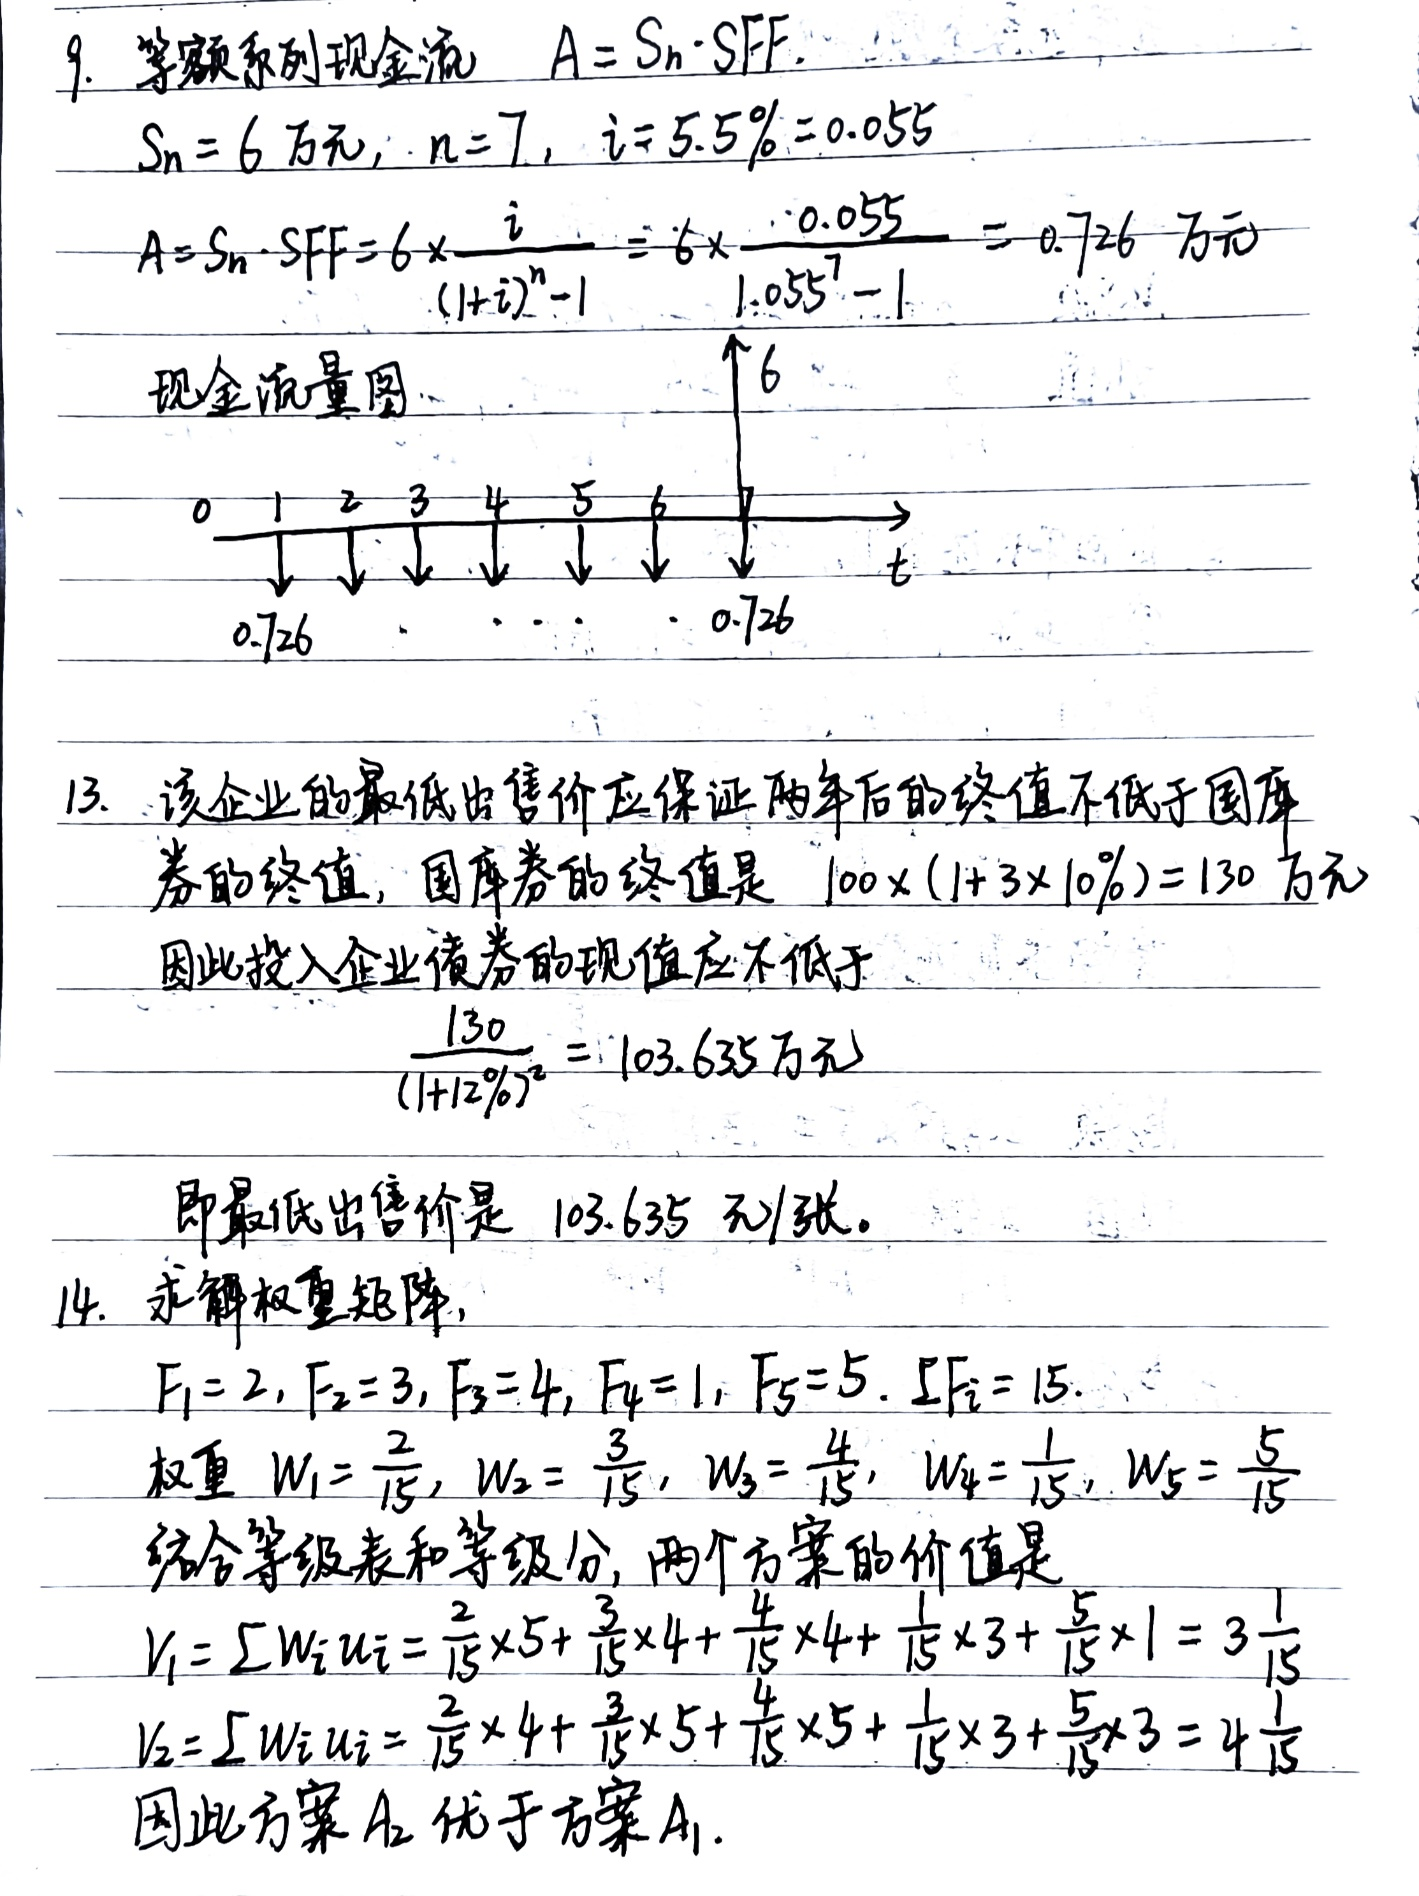 9. 等额系列现金流 A = Sn·SFF.
Sn = 6 万元, n = 7, i = 5.5% = 0.055
A = Sn·SFF = 6 × i/((1+i)^n - 1) = 6 × 0.055/(1.055^7 - 1) = 0.726 万元
现金流量图
6
0 1 2 3 4 5 6 7
t
0.726 · · · · · · 0.726
13. 该企业的最低出售价应保证两年后的终值不低于国库
券的终值, 国库券的终值是 100×(1+3×10%) = 130 万元
因此投入企业债券的现值应不低于
130/(1+12%)^2 = 103.635 万元
即最低出售价是 103.635 元/张。
14. 求解权重矩阵,
F1 = 2, F2 = 3, F3 = 4, F4 = 1, F5 = 5. ΣFi = 15.
权重 W1 = 2/15, W2 = 3/15, W3 = 4/15, W4 = 1/15, W5 = 5/15
结合等级表和等级分, 两个方案的价值是
V1 = ΣWiui = 2/15×5 + 3/15×4 + 4/15×4 + 1/15×3 + 5/15×1 = 3 1/15
V2 = ΣWiui = 2/15×4 + 3/15×5 + 4/15×5 + 1/15×3 + 5/15×3 = 4 1/15
因此方案 A2 优于方案 A1.